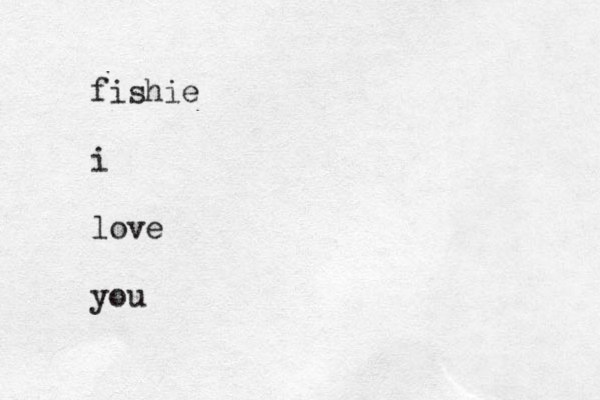 fishie
i
love
you